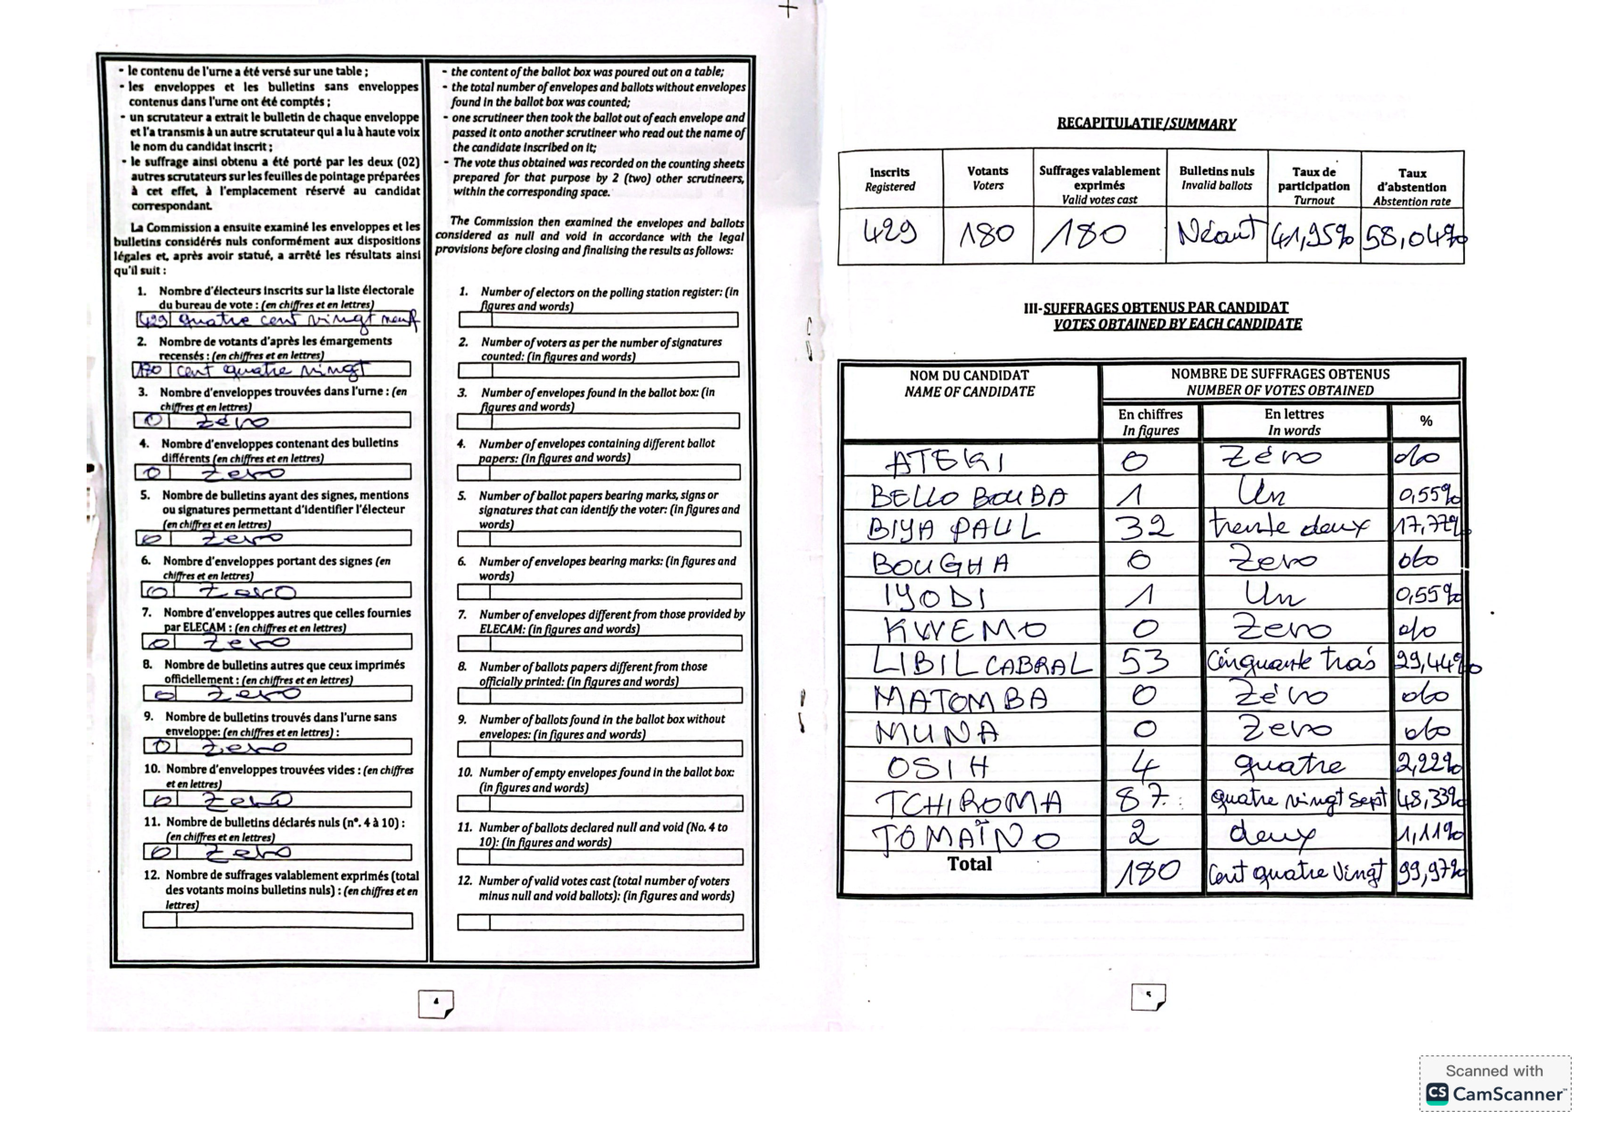 - le contenu de l'urne a été versé sur une table ;
- les enveloppes et les bulletins sans enveloppes
contenus dans l'urne ont été comptés ;
- un scrutateur a extrait le bulletin de chaque enveloppe
et l'a transmis à un autre scrutateur qui a lu à haute voix
le nom du candidat inscrit ;
- le suffrage ainsi obtenu a été porté par les deux (02)
autres scrutateurs sur les feuilles de pointage préparées
à cet effet, à l'emplacement réservé au candidat
correspondant.
La Commission a ensuite examiné les enveloppes et les
bulletins considérés nuls conformément aux dispositions
légales et, après avoir statué, a arrêté les résultats ainsi
qu'il suit :
1. Nombre d'électeurs inscrits sur la liste électorale
du bureau de vote : (en chiffres et en lettres)
429 quatre cent vingt neuf
2. Nombre de votants d'après les émargements
recensés : (en chiffres et en lettres)
cent quatre vingt
3. Nombre d'enveloppes trouvées dans l'urne : (en
chiffres et en lettres)
0 zéro
4. Nombre d'enveloppes contenant des bulletins
différents (en chiffres et en lettres)
0 zero
5. Nombre de bulletins ayant des signes, mentions
ou signatures permettant d'identifier l'électeur
(en chiffres et en lettres)
0 zero
6. Nombre d'enveloppes portant des signes (en
chiffres et en lettres)
0 zero
7. Nombre d'enveloppes autres que celles fournies
par ELECAM : (en chiffres et en lettres)
0 zero
8. Nombre de bulletins autres que ceux imprimés
officiellement : (en chiffres et en lettres)
0 zero
9. Nombre de bulletins trouvés dans l'urne sans
enveloppe: (en chiffres et en lettres) :
0 zero
10. Nombre d'enveloppes trouvées vides : (en chiffres
et en lettres)
0 zero
11. Nombre de bulletins déclarés nuls (n°. 4 à 10) :
(en chiffres et en lettres)
0 zero
12. Nombre de suffrages valablement exprimés (total
des votants moins bulletins nuls) : (en chiffres et en
lettres)
- the content of the ballot box was poured out on a table;
- the total number of envelopes and ballots without envelopes
found in the ballot box was counted;
- one scrutineer then took the ballot out of each envelope and
passed it onto another scrutineer who read out the name of
the candidate inscribed on it;
- The vote thus obtained was recorded on the counting sheets
prepared for that purpose by 2 (two) other scrutineers,
within the corresponding space.
The Commission then examined the envelopes and ballots
considered as null and void in accordance with the legal
provisions before closing and finalising the results as follows:
1. Number of electors on the polling station register: (in
figures and words)
2. Number of voters as per the number of signatures
counted: (in figures and words)
3. Number of envelopes found in the ballot box: (in
figures and words)
4. Number of envelopes containing different ballot
papers: (in figures and words)
5. Number of ballot papers bearing marks, signs or
signatures that can identify the voter: (in figures and
words)
6. Number of envelopes bearing marks: (in figures and
words)
7. Number of envelopes different from those provided by
ELECAM: (in figures and words)
8. Number of ballots papers different from those
officially printed: (in figures and words)
9. Number of ballots found in the ballot box without
envelopes: (in figures and words)
10. Number of empty envelopes found in the ballot box:
(in figures and words)
11. Number of ballots declared null and void (No. 4 to
10): (in figures and words)
12. Number of valid votes cast (total number of voters
minus null and void ballots): (in figures and words)
4
RECAPITULATIF/SUMMARY
Inscrits Registered Votants Voters Suffrages valablement exprimés Valid votes cast Bulletins nuls Invalid ballots Taux de participation Turnout Taux d'abstention Abstention rate
429 180 180 Néant 41,95% 58,04%
III-SUFFRAGES OBTENUS PAR CANDIDAT
VOTES OBTAINED BY EACH CANDIDATE
NOM DU CANDIDAT NOMBRE DE SUFFRAGES OBTENUS
NAME OF CANDIDATE NUMBER OF VOTES OBTAINED
En chiffres En lettres %
In figures In words
ATEKI 0 Zéro 0%
BELLO BOUBA 1 Un 0,55%
BIYA PAUL 32 trente deux 17,77%
BOUGHA 0 Zero 0%
IYODI 1 Un 0,55%
KWEMO 0 Zero 0%
LIBII CABRAL 53 Cinquante trois 29,44%
MATOMBA 0 Zéro 0%
MUNA 0 Zero 0%
OSIH 4 quatre 2,22%
TCHIROMA 87 quatre vingt sept 48,33%
TOMAÏNO 2 deux 1,11%
Total 180 Cent quatre vingt 99,97%
5
Scanned with
CS CamScanner